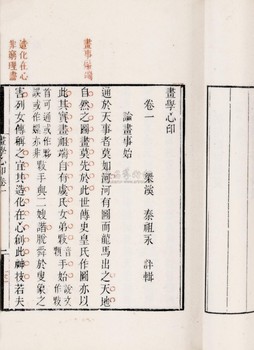 畫學心印
卷一
梁溪 秦祖永 評輯
論畫事始
通於天事者莫如河河有圖而龍馬出之天地
自然之圖畫莫先於此世傳史皇氏作圖亦以
此其實畫 端自有虞氏女弟敤首 始說文
首可通或作
誤或作 亦非 敤手與二嫂諧脫舜於叟象之
害列女傳稱之宜其造化在心創此神技若夫
畫事 端
造化在心
畫學心印卷一
一